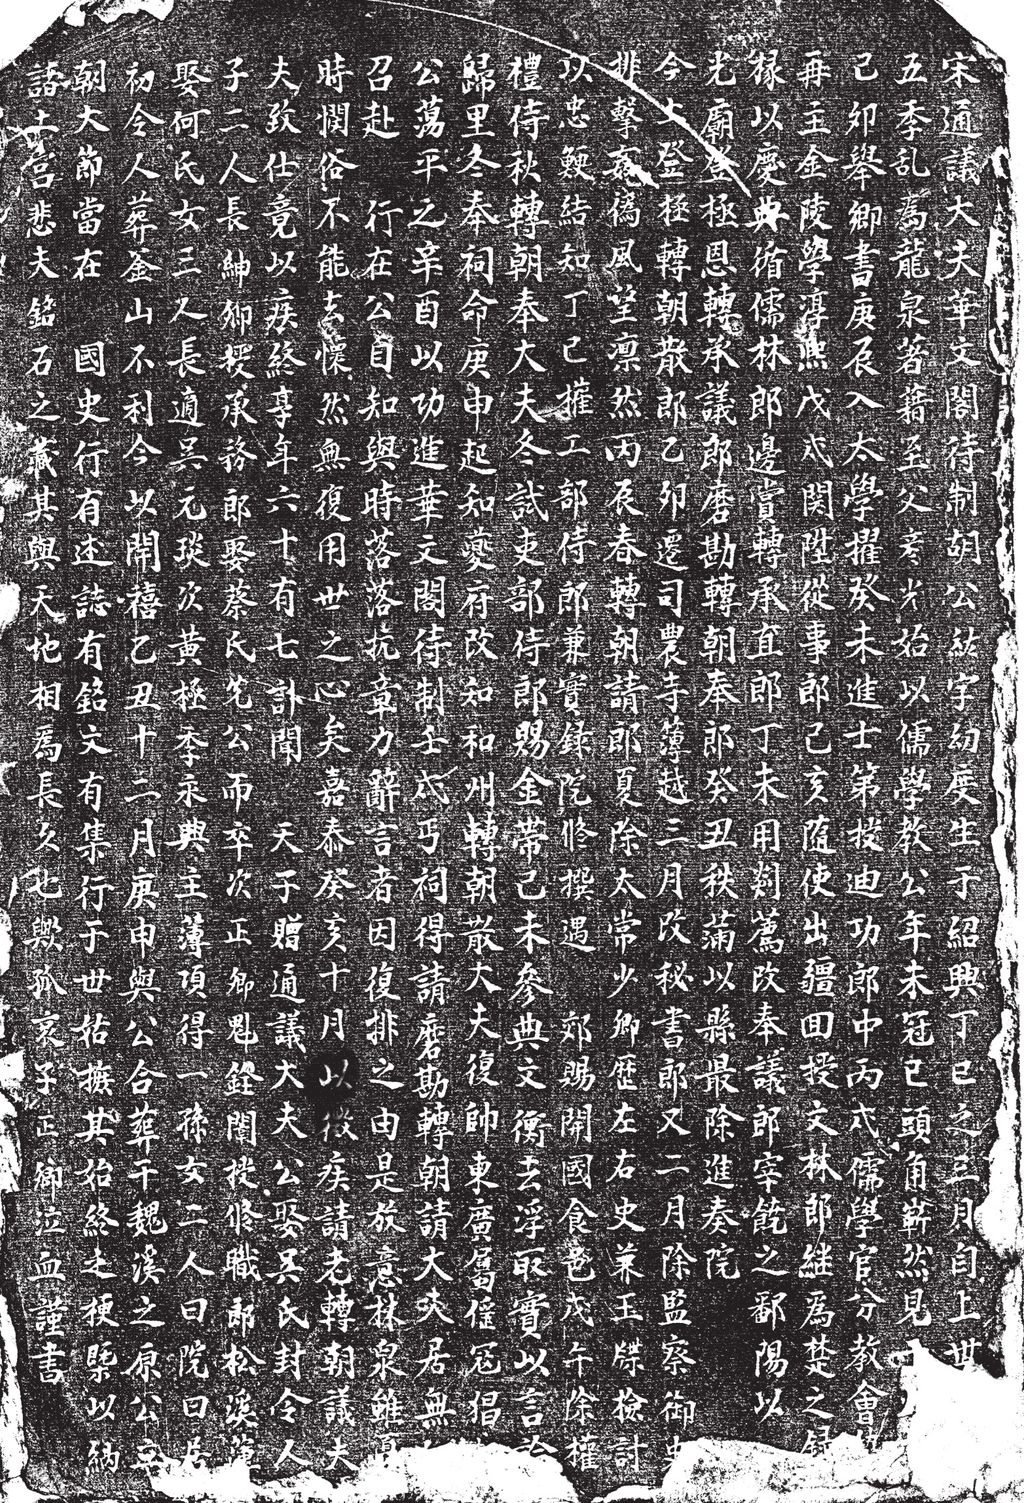 宋通議大夫華文閣待制胡公紘字幼度生于紹興丁巳之三月自上世
五季乱爲龍泉著籍至父彥光始以儒學教公年未冠已頭角嶄然見
己卯舉鄉書庚辰入太學擢癸未進士第授迪功郎中丙戌儒學官分教會
再主金陵學淳熙戊戌関陞從事郎己亥随使出疆回授文林郎継爲楚之録
椽以慶典循儒林郎邊賞轉承直郎丁未用剡薦改奉議郎宰饒之鄱陽以
光廟登極恩轉承議郎磨勘轉朝奉郎癸丑秩滿以縣最除進奏院
今上登極轉朝散郎乙卯遷司農寺簿越三月改秘書郎又二月除監察御史
排擊姦僞風望凛然丙辰春轉朝請郎夏除太常少卿歷左右史兼玉牒檢討
以忠鯁結知丁巳擢工部侍郎兼實録院修撰遇　郊賜開國食邑戊午除權
禮侍秋轉朝奉大夫冬試吏部侍郎賜金帶己未參典文衡去浮取實以言
歸里冬奉祠命庚申起知夔府改知和州轉朝散大夫復帥東廣屬傜冦猖
公蕩平之辛酉以功進華文閣待制壬戌丐祠得請磨勘轉朝請大夫居無
召赴　行在公自知與時落落抗章力辭言者因復排之由是放意林泉雖
時憫俗不能去懷然無復用世之心矣嘉泰癸亥十月以微疾請老轉朝議大
夫致仕竟以疾終享年六十有七訃聞　天子贈通議大夫公娶吳氏封令人
子二人長紳卿授承務郎娶蔡氏先公而卒次正卿魁銓闈授修職郎松溪簿
娶何氏女三人長適吴元琰次黄極季永興主薄項得一孫女二人曰院曰居
初令人葬釜山不利今以開禧乙丑十二月庚申與公合葬于魏溪之原公立
朝大節當在　國史行有述誌有銘文有集行于世姑摭其始終之梗槩以納
諸土宫悲夫銘石之藏其與天地相爲長久也歟孤哀子正卿泣血謹書